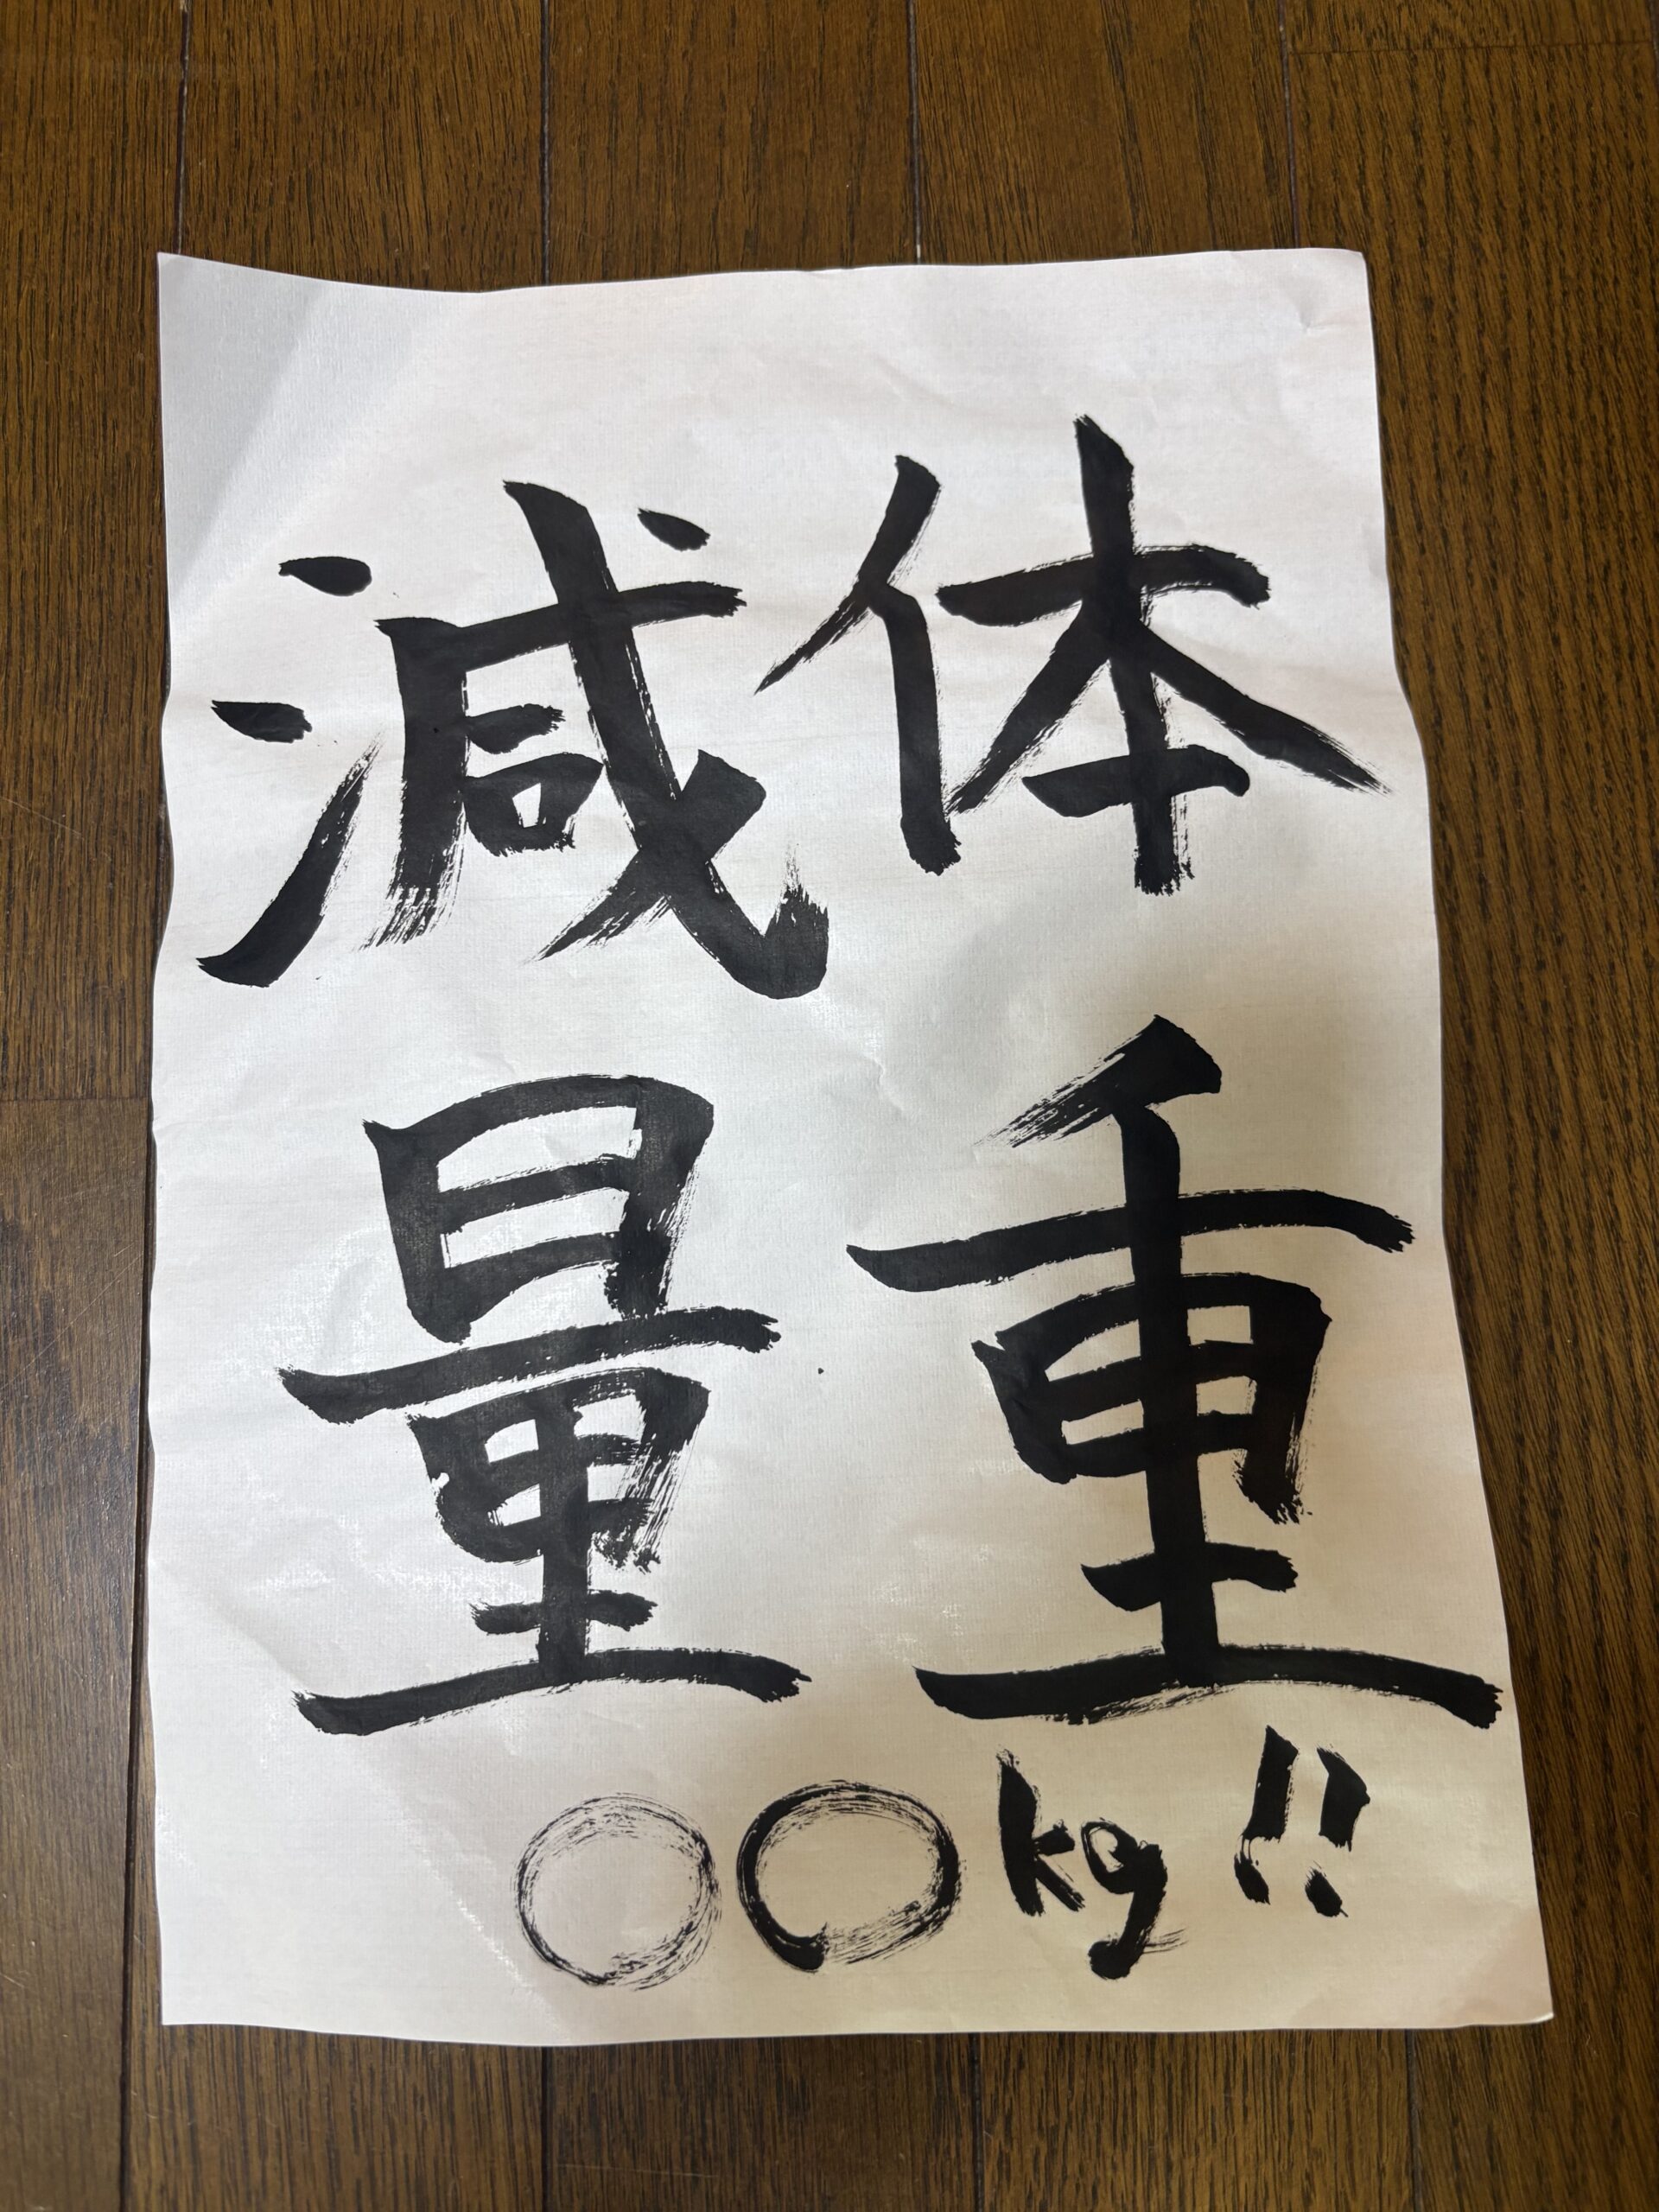 体重
減量
〇〇kg!!